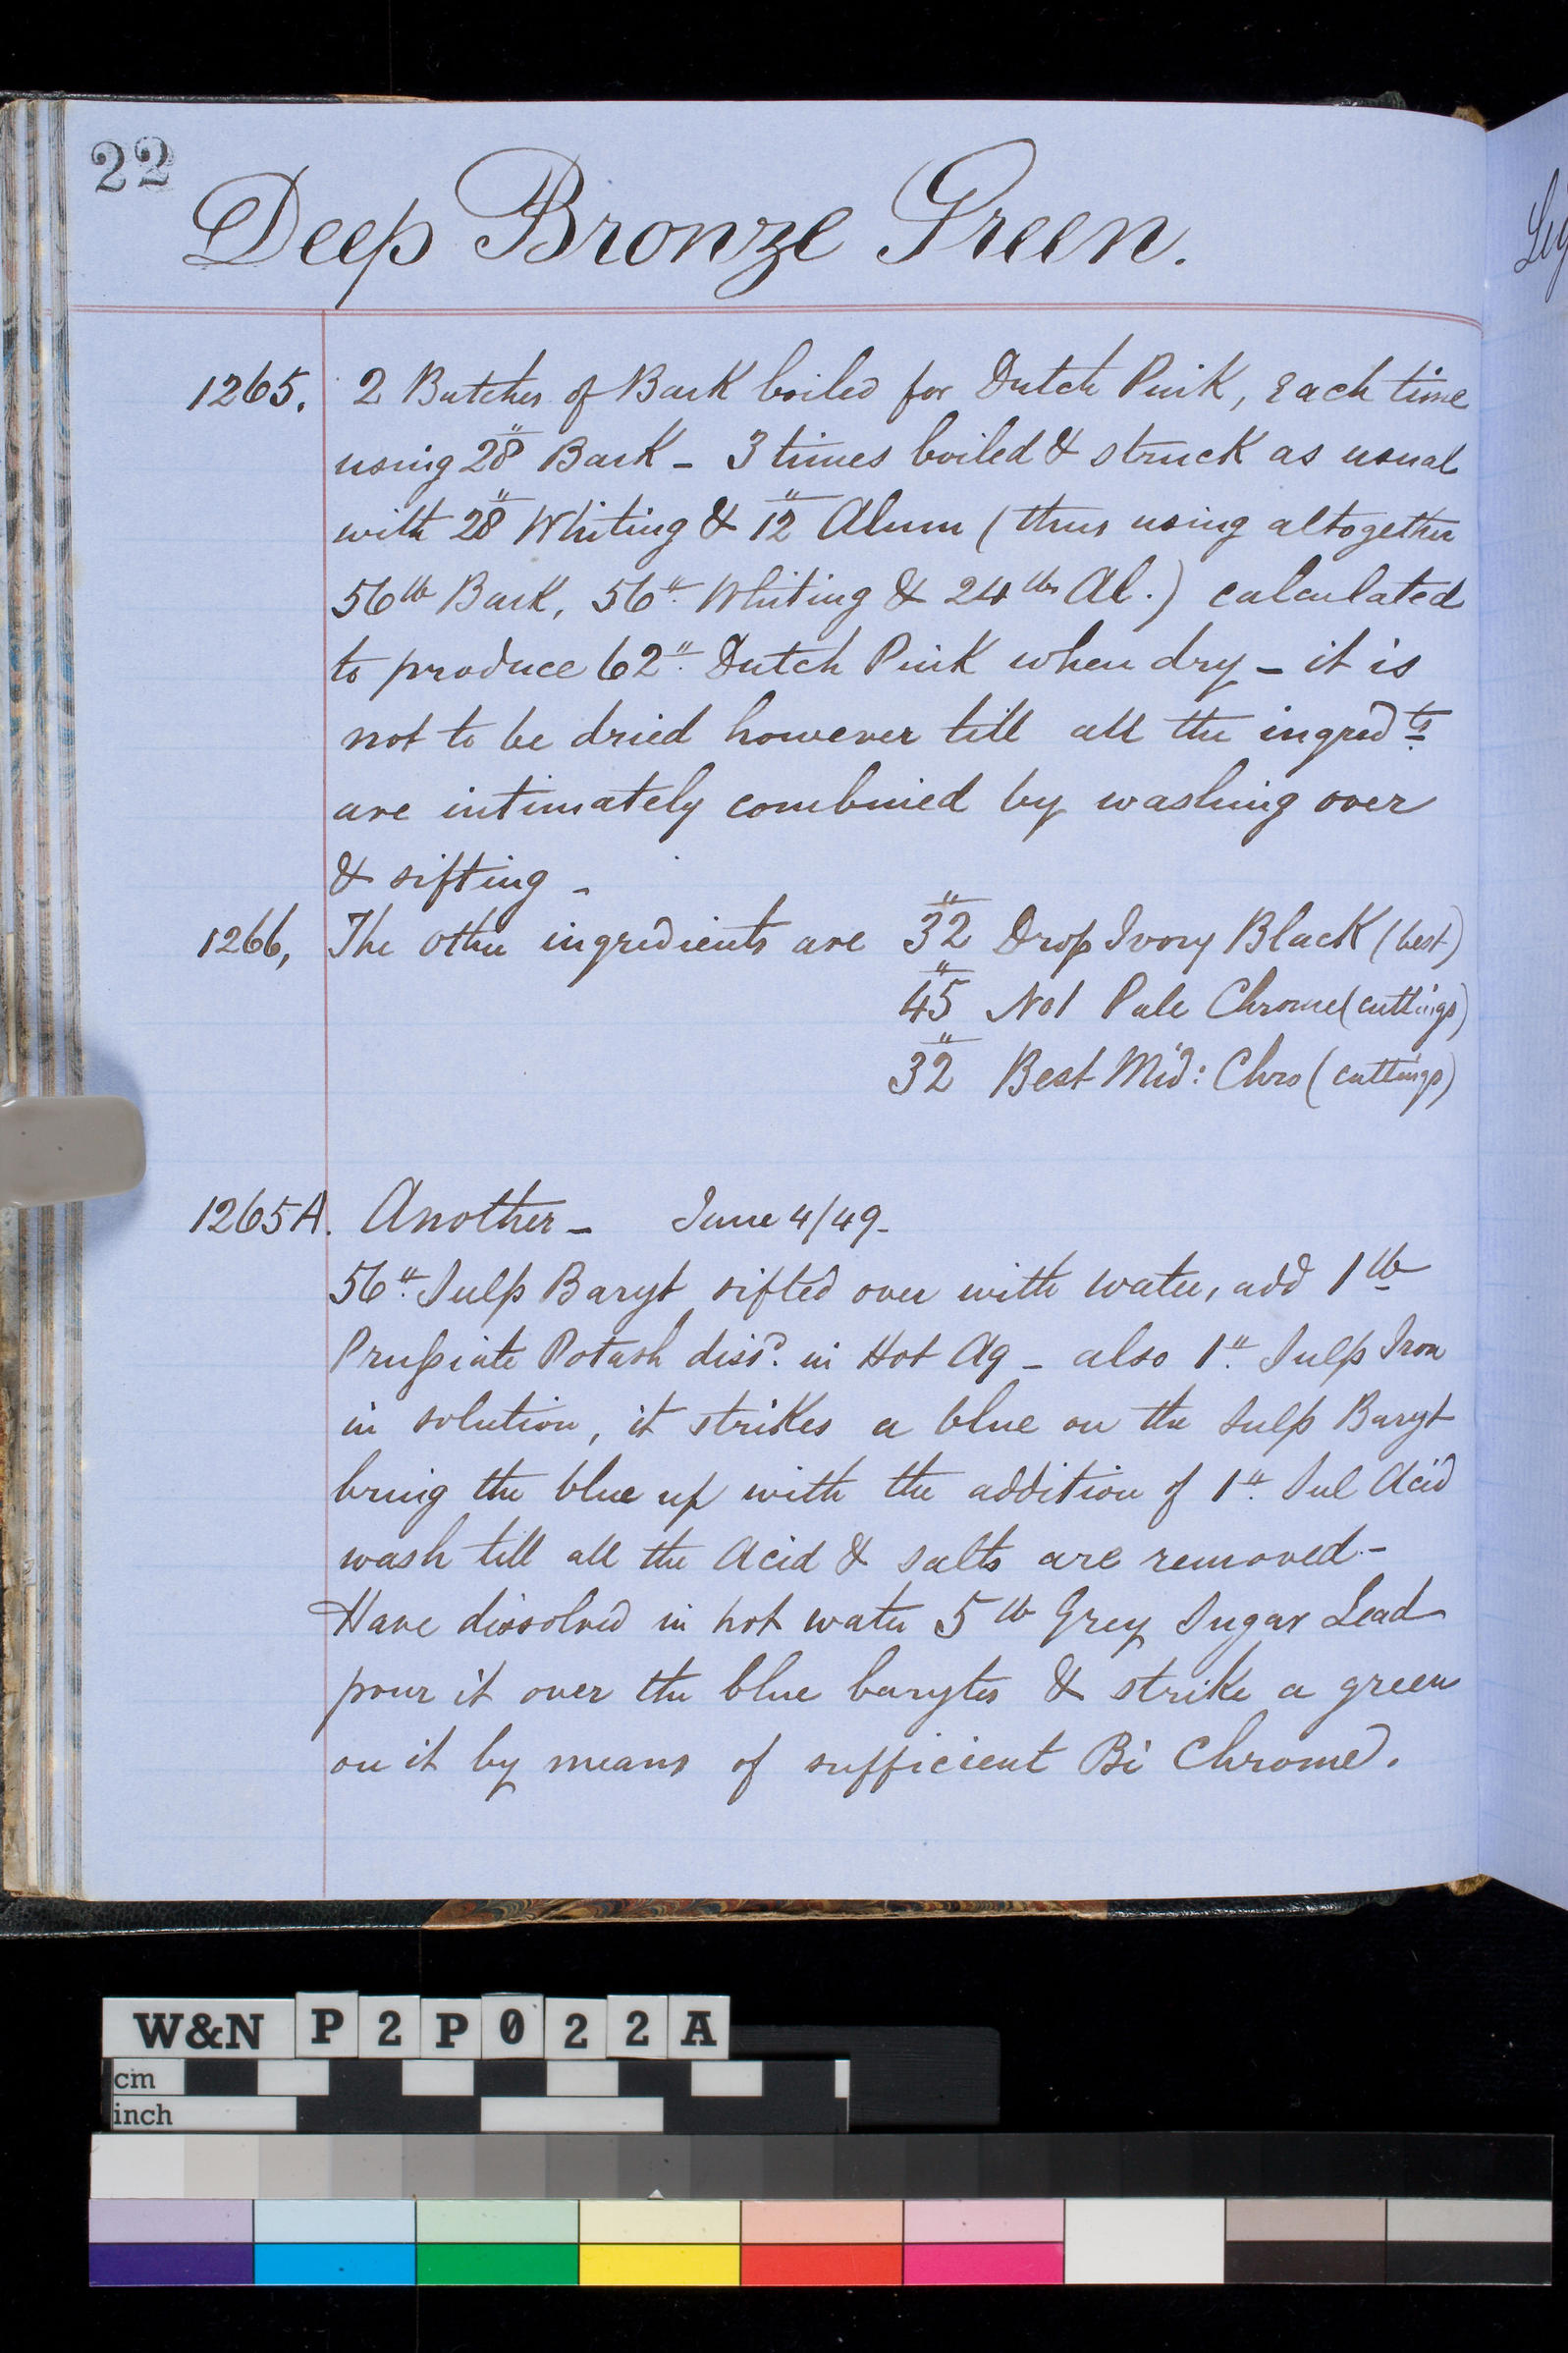 22
Deep Bronze Green.
1265. 2 Batches of Bark boiled for Dutch Pink, Each time
using 28" Bark - 3 times boiled & struck as usual
with 28" Whiting & 12" Alum (thus using altogether
56lb Bark, 56" Whiting & 24lbs Al.) calculated
to produce 62" Dutch Pink when dry - it is
not to be dried however till all the ingredts
are intimately combined by washing over
& sifting -
1266, The other ingredients are 32" Drop Ivory Black (best)
45" No1 Pale Chrome (cuttings)
32" Best Mid: Chro (cuttings)
1265A. Another - June 4/49-
56" Sulp Baryt sifted over with water, add 1lb
Prußiate Potash dissd. in Hot Aq - also 1" Sulp Iron
in solution, it strikes a blue on the Sulp Baryt
bring the blue up with the addition of 1" Sul Acid
wash till all the Acid & salts are removed.-
Have dissolved in hot water 5lb Grey Sugar Lead
pour it over the blue barytes & strike a green
on it by means of sufficient Bi Chrome.
W&N P2P022A
cm
inch